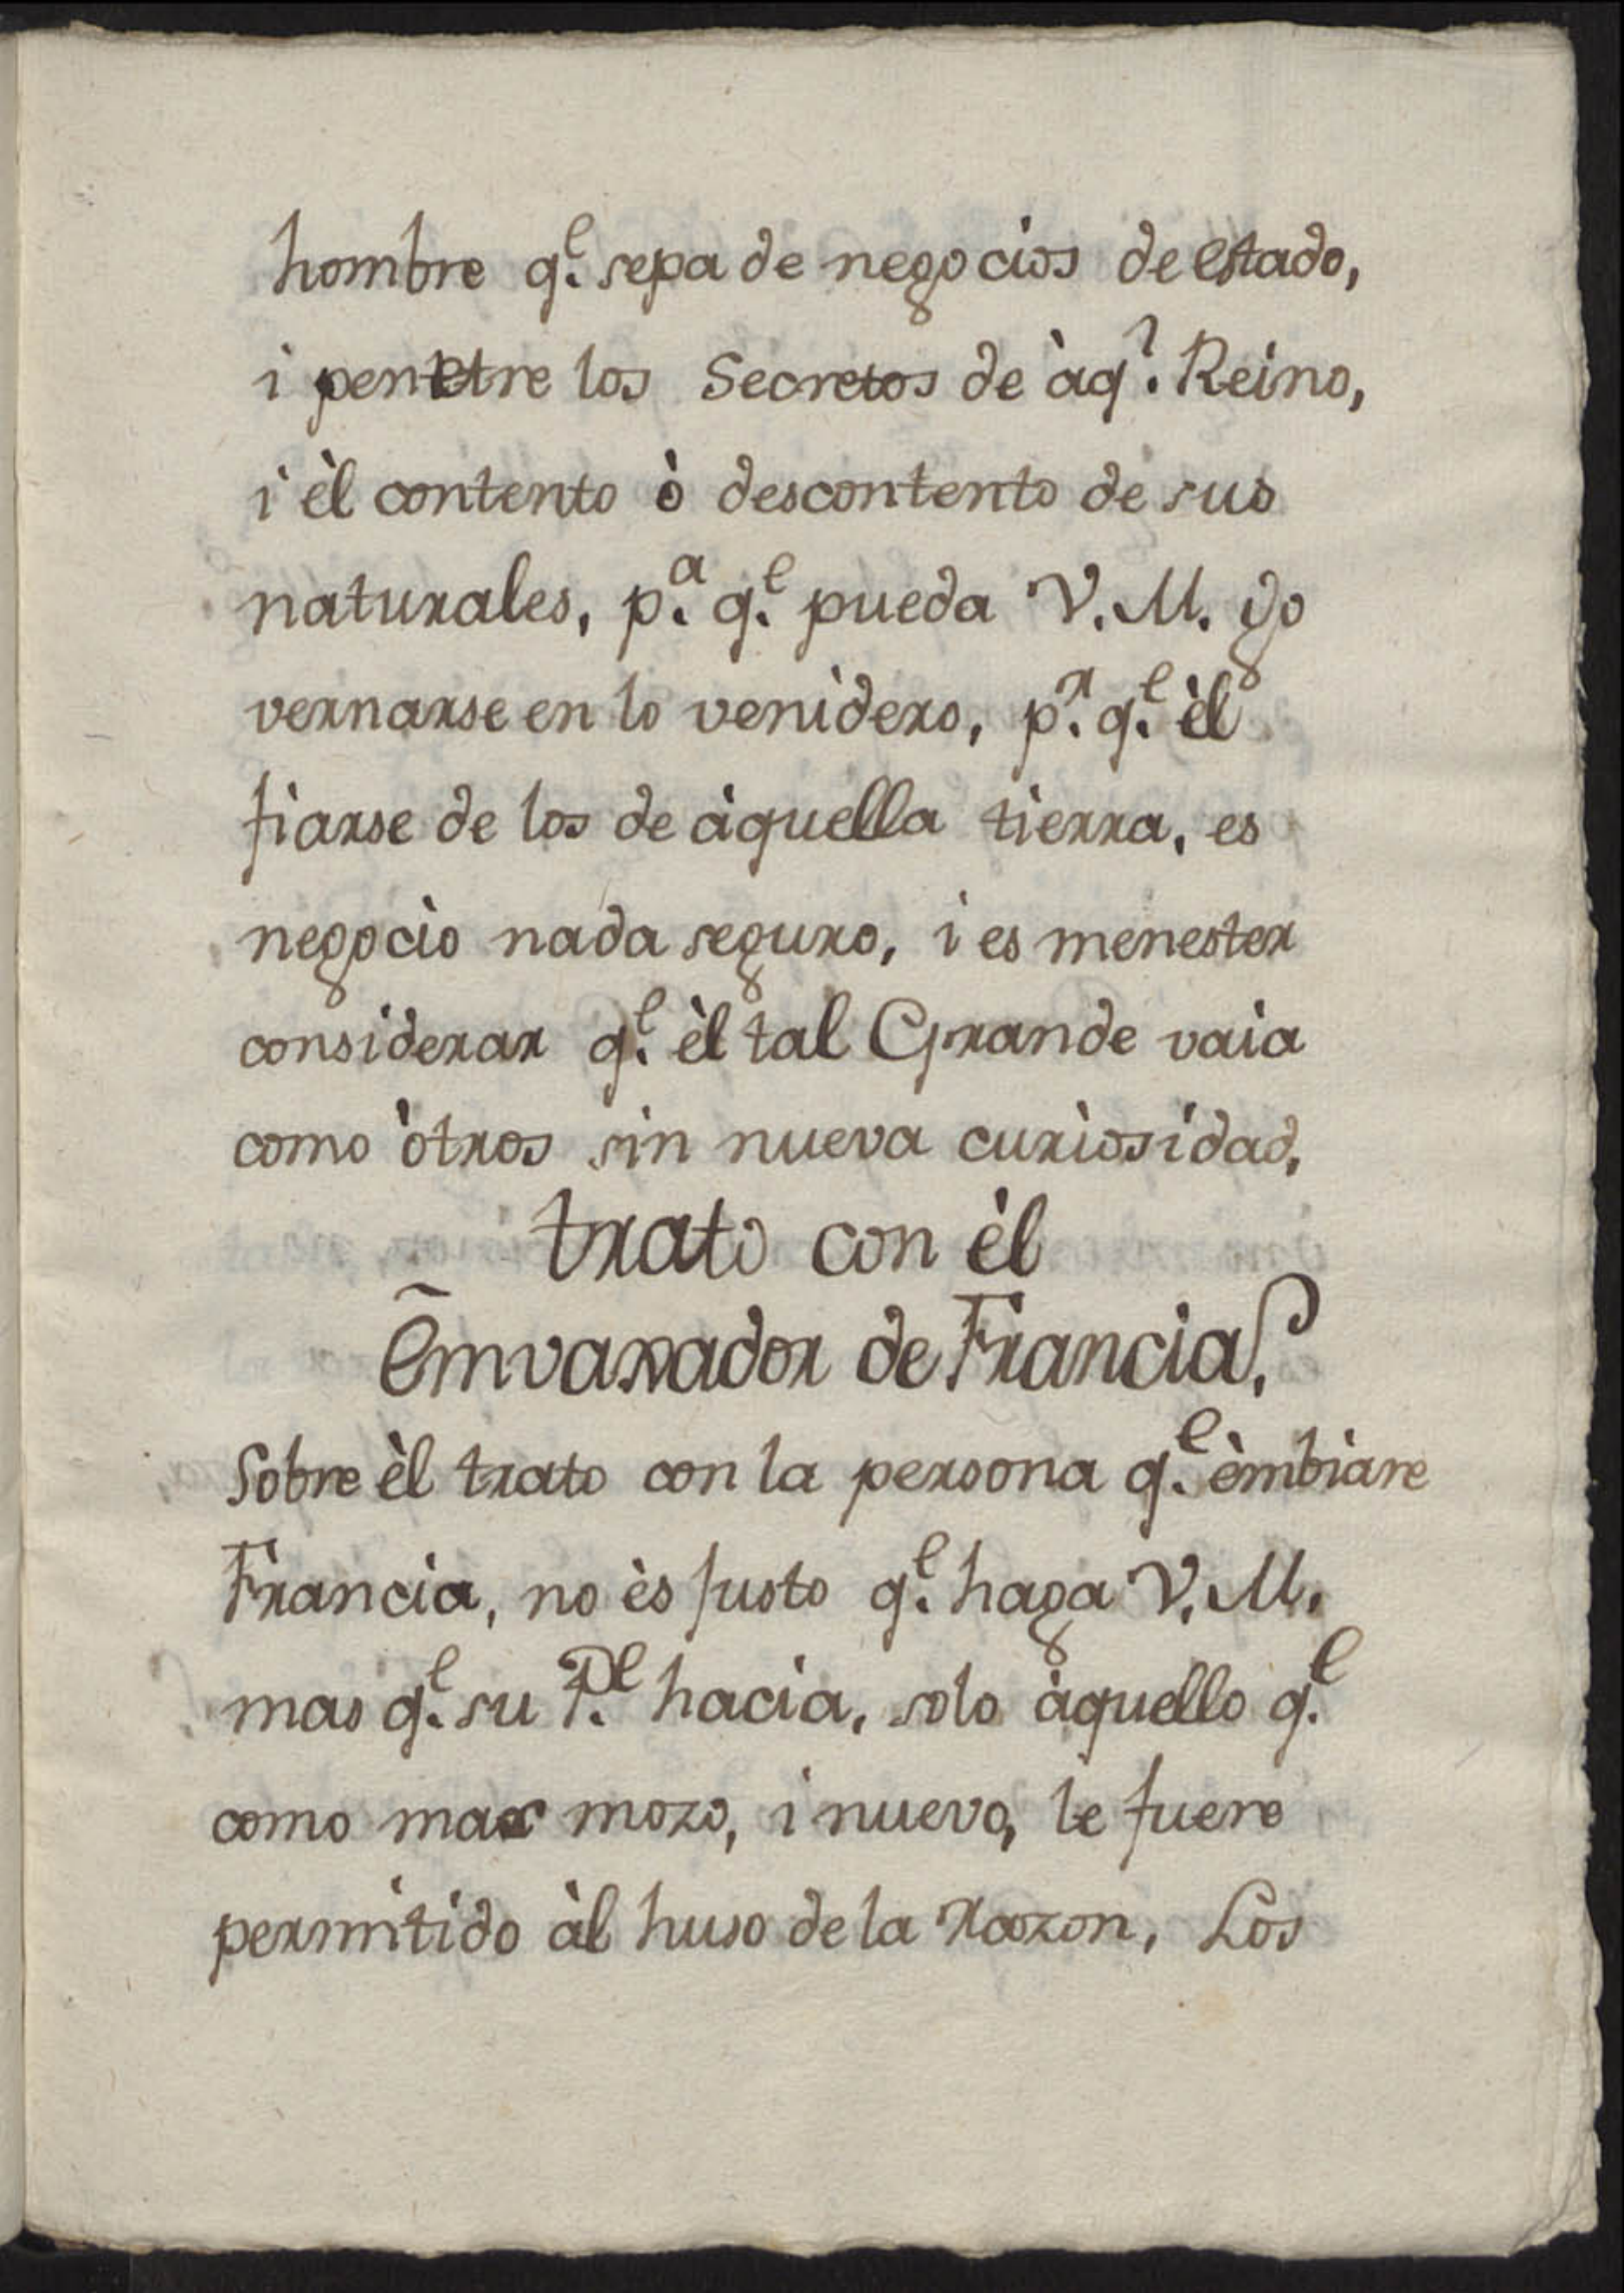 hombre q.e sepa de negocios de estado,
i penetre los Secretos de àq.l Reino,
i èl contento ò descontento de sus
naturales, p.a q.e pueda V.M. go
vernarse en lo venidero, p.r q.e èl
fiarse de los de àquella tierra, es
negocio nada seguro, i es menester
considerar q.e èl tal Grande vaia
como òtros sin nueva curiosidad,
trato con èl
Emvaxador de Francia.
Sobre èl trato con la persona q.e èmbiare
Francia, no ès justo q.e haga V.M.
mas q.e su P.e hacia, solo àquello q.e
como mas mozo, i nuevo, le fuere
permitido àl huso de la razon, Los